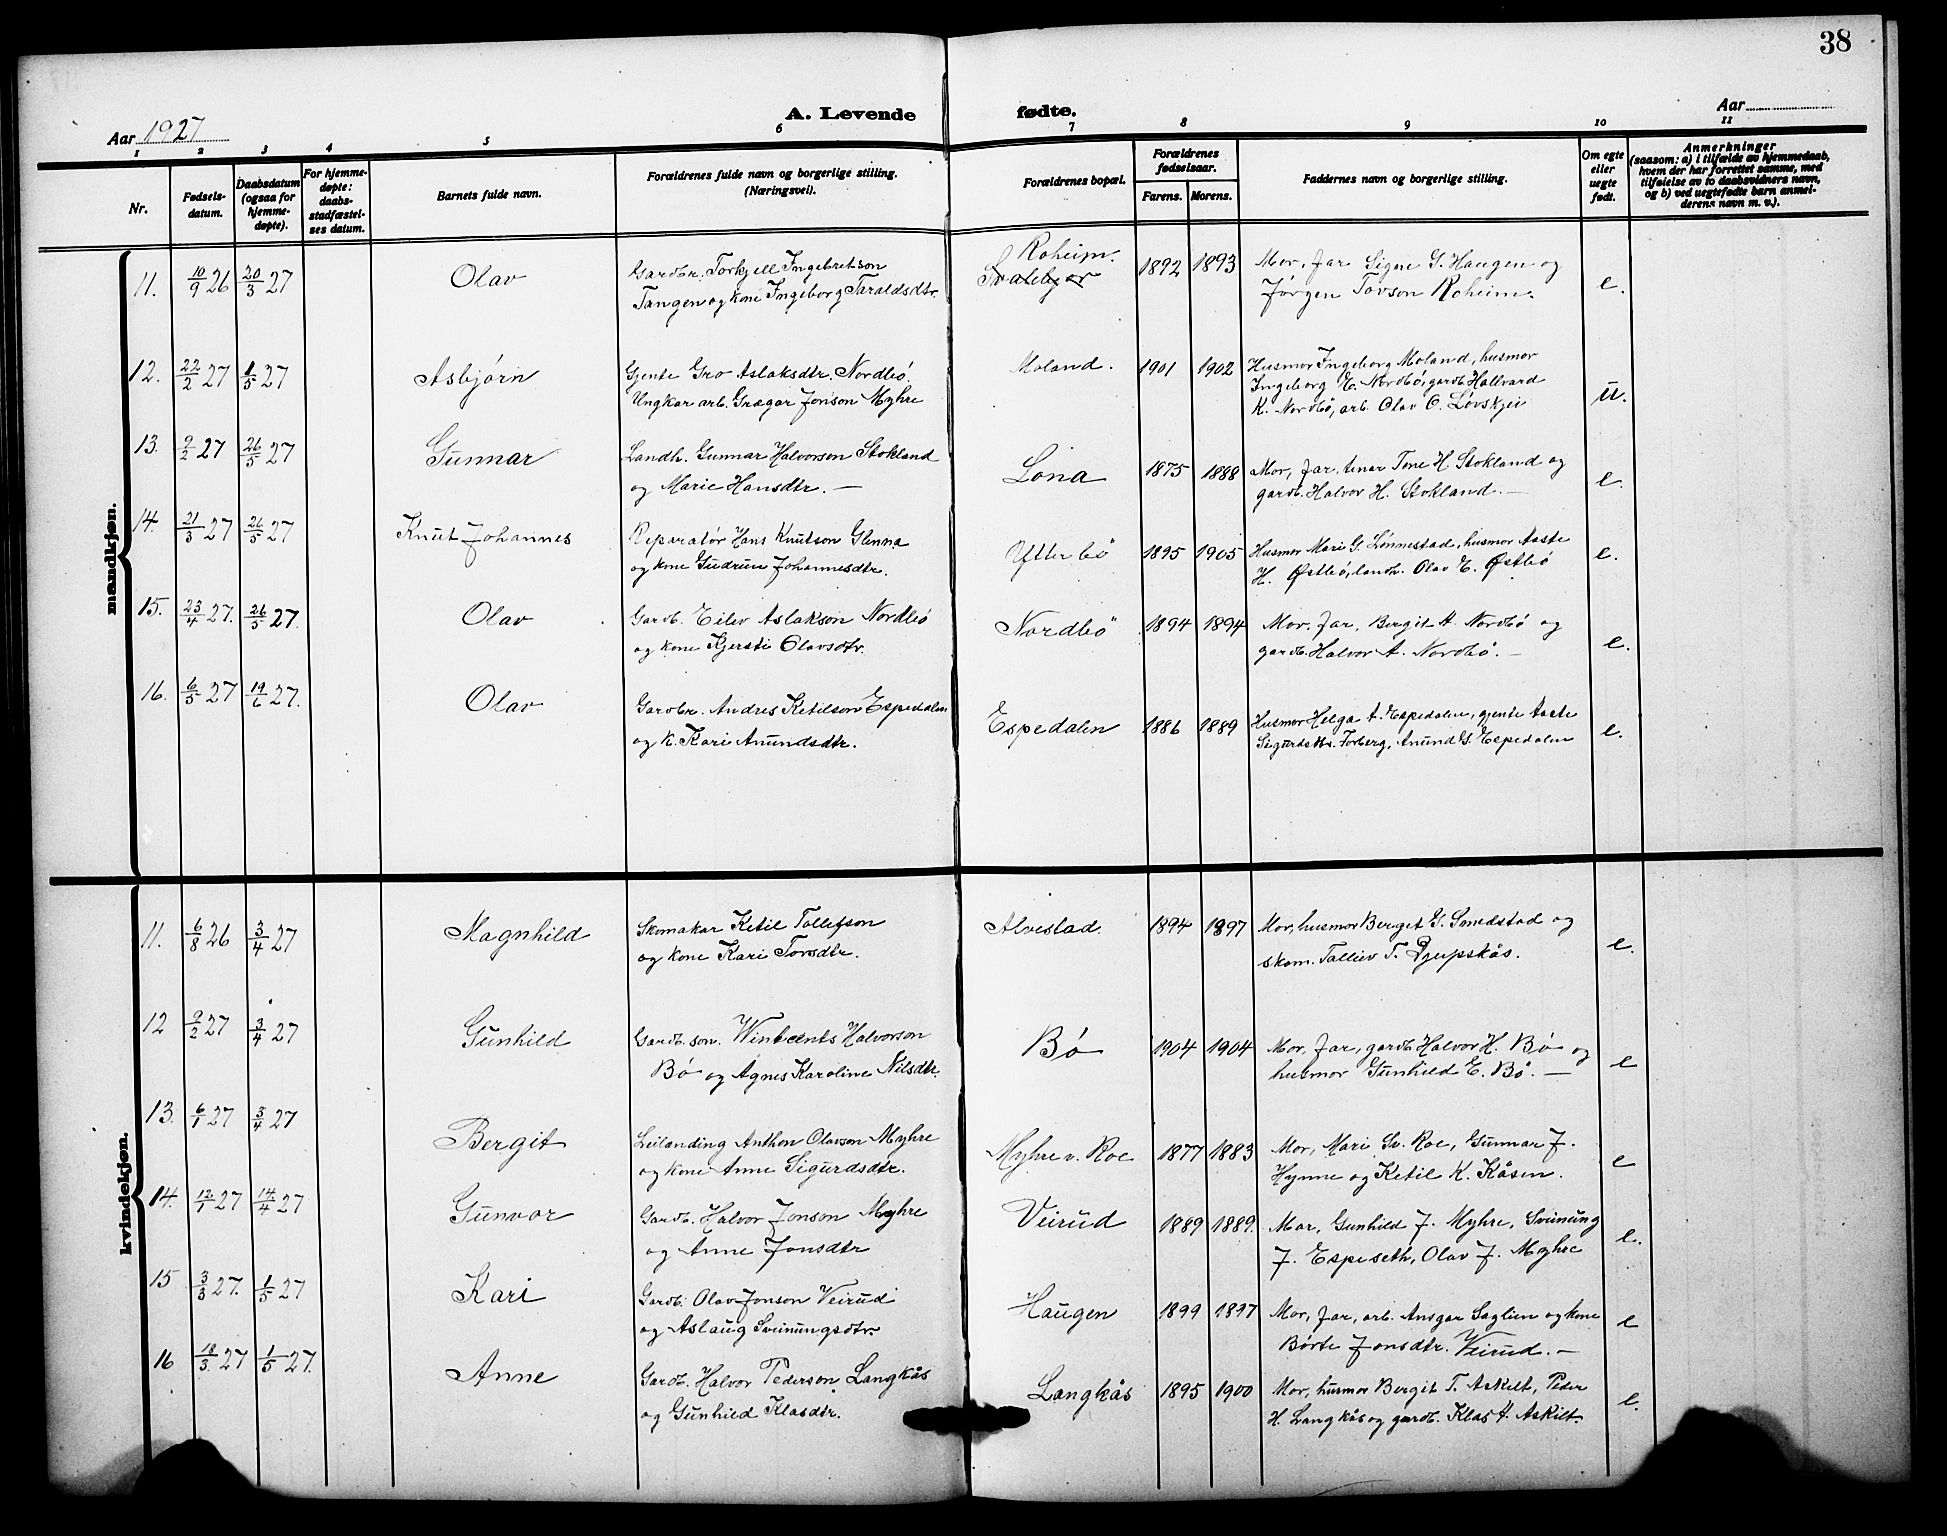 38
Aar 1927
A. Levende fødte.
Aar
1 2 3 4 5 6 7 8 9 10 11
Nr.
Fødsels-
datum.
Daabsdatum
(ogsaa for
hjemme-
døpte).
For hjemme-
døpte:
daabs-
stadfæstel-
ses datum.
Barnets fulde navn.
Forældrenes fulde navn og borgerlige stilling.
(Næringsvei).
Forældrenes bopæl.
Forældrenes
fødselsaar.
Farens. Morens.
Faddernes navn og borgerlige stilling.
Om egte
eller
uegte
født.
Anmerkninger
(saasom: a) i tilfælde av hjemmedaab,
hvem der har forrettet samme, med
tilføielse av to daabsvidners navn,
og b) ved uegtefødte barn anmel-
derens navn m. v.).
mandkjøn.
11. 10/9 26 20/3 27 Olav
Gardbr. Torkjell Ingebretson
Tangen og kone Ingeborg Taraldsdtr.
Roheim.
1892 1893
Mor, far Signe G. Haugen og
Jørgen Tovson Roheim.
e.
12. 22/2 27 1/5 27 Asbjørn
Gjente Gro Aslaksdtr. Nordbó.
Ungkar arb. Grægar Jonson Myhre
Moland. 1901 1902
Husmor Ingeborg Moland, husmor
Ingeborg K. Nordbö, gardb. Hallvard
K. Nordbö, arb. Olav O. Lövskjei
u.
13. 9/2 27 26/5 27 Gunnar
Landh. Gunnar Halvorson Stokland
og Marie Hansdtr. —
Lona 1875 1888
Mor, far, tenar Tone H. Stokland og
gardb. Halvor H. Stokland. —
e.
14. 21/3 27 26/5 27 Knut Johannes
Reparatør Hans Knutson Glenna
og kone Gudrun Johannesdtr.
Ytterbö 1895 1905
Husmor Mari G. Lønnestad, husmor Aaste
H. Østbö, landh. Olav E. Østbö
e.
15. 23/4 27. 26/5 27. Olav
Gardb. Eilev Aslakson Nordbó
og kone Kjersti Olavsdtr.
Nordbö 1894 1894
Mor, far, Bergit A. Nordbó og
gardb. Halvor A. Nordbó. —
e.
16. 6/5 27 19/6 27. Olav
Gardbr. Andres Ketilson Espedalen
og k. Kari Anundsdtr.
Espedalen 1886 1889
Husmor Helga A. Espedalen, gjente Aaste
Sigurdsdtr. Forberg, Anund G. Espedalen
e.
kvindekjøn.
11. 6/8 26 3/4 27 Magnhild
Skomakar Ketil Tollefson
og kone Kari Torsdtr.
Alvestad. 1894 1897
Mor, husmor Berget G. Smedstad og
skom. Talliev T. Djupskås.
e.
12 9/2 27 3/4 27 Gunhild
Gardb. son. Winteents Halvorson
Bó og Agnes Karoline Nilsdtr.
Bó 1904 1904
Mor, far, gardb. Halvor H. Bó og
husmor Gunhild E. Bó. —
e
13. 6/1 27 3/4 27 Bergit
Leilending Anthon Olavson Myhre
og kone Anne Sigurdsdtr.
Myhre v. Roe 1877 1883
Mor, Mari Sv. Roe, Gunnar J.
Hynne og Ketil K. Kåsen.
e
14. 12/1 27 14/4 27 Gunvor
Gardb. Halvor Jonson Myhre
og Anne Jonsdtr
Veirud 1889 1889.
Mor, Gunhild J. Myhre, Sveinung
J. Espeseth, Olav J. Myhre
e.
15 3/3 27. 1/5 27 Kari
Gardb. Olav Jonson Veirud
og Aslaug Sveinungsdtr.
Haugen 1899 1897
Mor, far, arb. Ansgar Saglien og kone
Børte Jonsdtr. Veirud. —
e
16 18/3 27 1/5 27. Anne
Gardb. Halvor Pederson Langkås
og Gunhild Klasdtr.
Langkås 1895 1900
Mor, husmor Bergit T. Askilt, Peder
H. Langkås og gardb. Klas H. Askilt.
e.